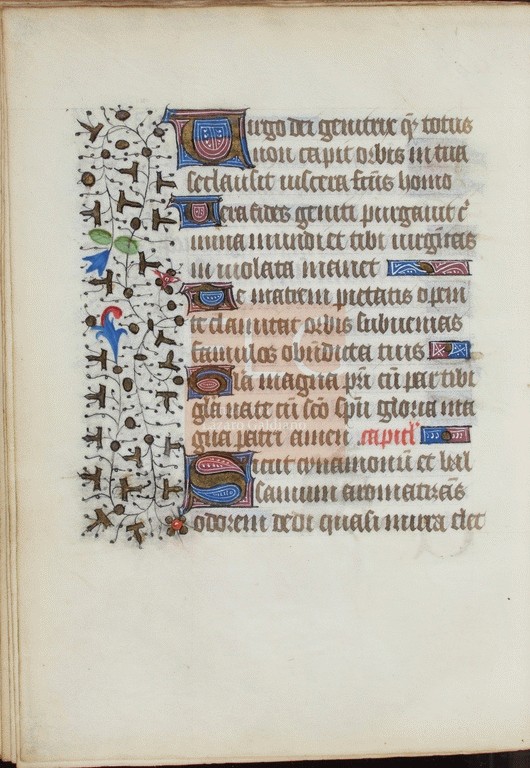 Virgo dei genitrix q̄ totus
non capit orbis in tua
se clausit viscera fact̄s homo
Vera fides geniti purgavit c̄
mina mundi et tibi virgītas
in violata manet
Te matrem pietatis opem
te clamitat orbis subvenias
famulos o bn̄dicta tuis
Gl̄a magna pr̄i cū par tibi
gl̄a nate cū sc̄o spū gloria ma
gna patri amen capitl̄
Sicut cynamomū et bal
samum aromatizās
odorem dedi quasi mirra elec
Lázaro Galdiano